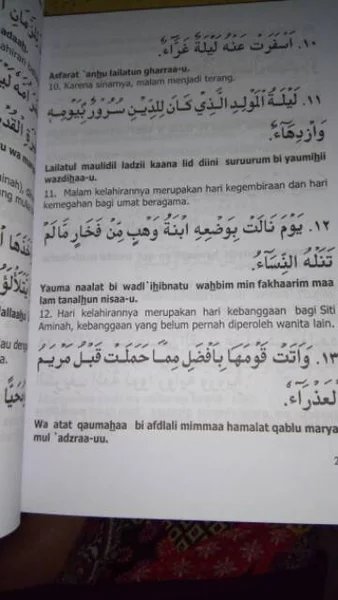 ١٠. اَسْفَرَتْ عَنْهُ لَيْلَةٌ غَرَّآءُ.
Asfarat `anhu lailatun gharraa-u.
10. Karena sinarnya, malam menjadi terang.
١١. لَيْلَةُ الْمَوْلِدِ الَّذِيْ كَانَ لِلدِّيْنِ سُرُوْرٌ بِيَوْمِهِ
وَازْدِهَآءُ.
Lailatul maulidil ladzii kaana lid diini suruurum bi yaumihii
wazdihaa-u.
11. Malam kelahirannya merupakan hari kegembiraan dan hari
kemegahan bagi umat beragama.
١٢. يَوْمَ نَالَتْ بِوَضْعِهِ ابْنَةُ وَهْبٍ مِنْ فَخَارٍ مَالَمْ
تَنَلْهُ النِّسَآءُ.
Yauma naalat bi wadl`ihibnatu wahbim min fakhaarim maa
lam tanalhun nisaa-u.
12. Hari kelahirannya merupakan hari kebanggaan bagi Siti
Aminah, kebanggaan yang belum pernah diperoleh wanita lain.
١٣. وَاَتَتْ قَوْمَهَا بِاَفْضَلِ مِمَّا حَمَلَتْ قَبْلُ مَرْيَمُ
الْعَذْرَآءُ.
Wa atat qaumahaa bi afdlali mimmaa hamalat qablu marya
mul `adzraa-uu.